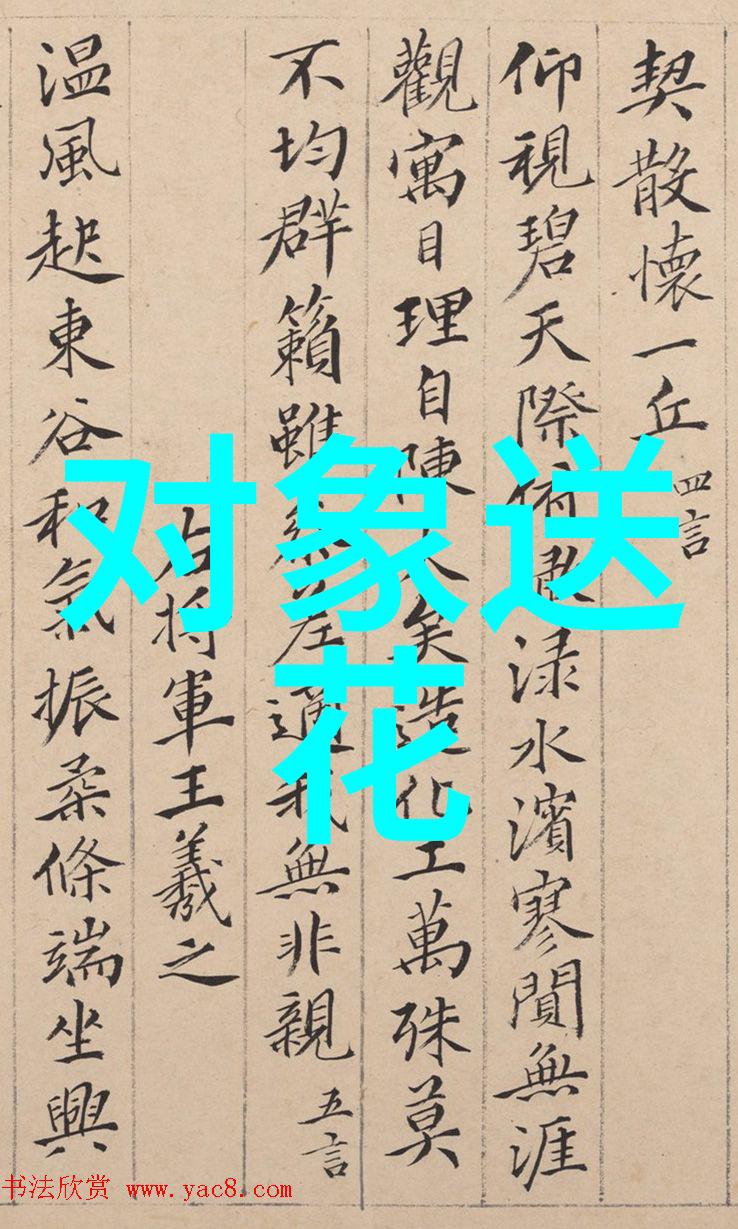 契散懷一丘 四言
仰視碧天際俯瞰渌水濱寥閴無涯
觀寓目理自陳大矣造化工萬殊莫
不均群籟雖參差適我無非親 五言
右將軍王羲之
温風起東谷和氣振柔條端坐興
对象送
花
书法欣赏 www.yac8.com